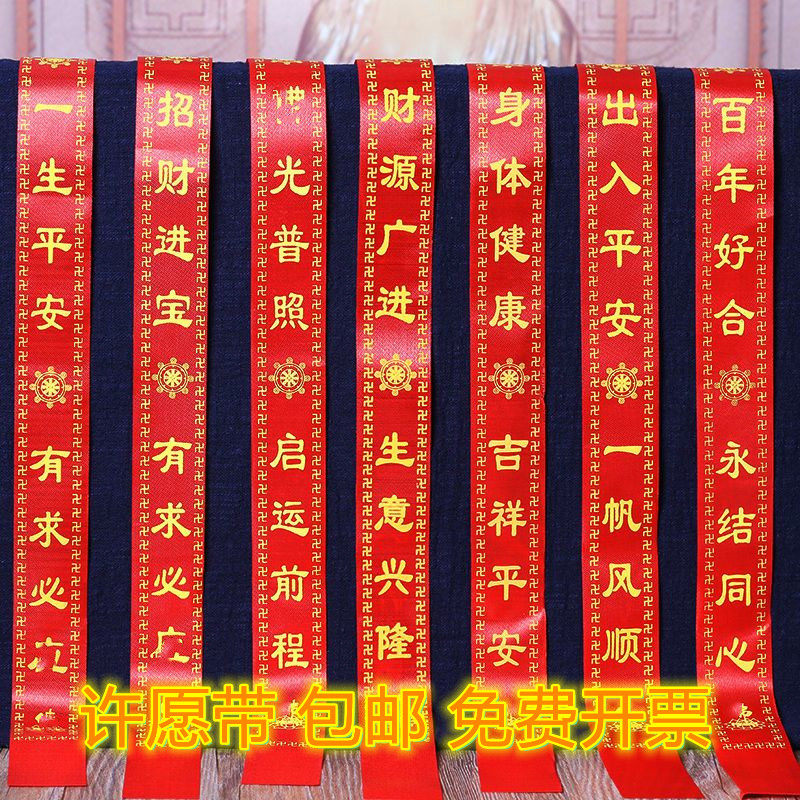 一生平安
有求必
招财进宝
有求必应
光普照
启运前程
财源广进
生意兴隆
身体健康
吉祥平安
出入平安
一帆风顺
百年好合
永结同心
许愿带 包邮 免费开票